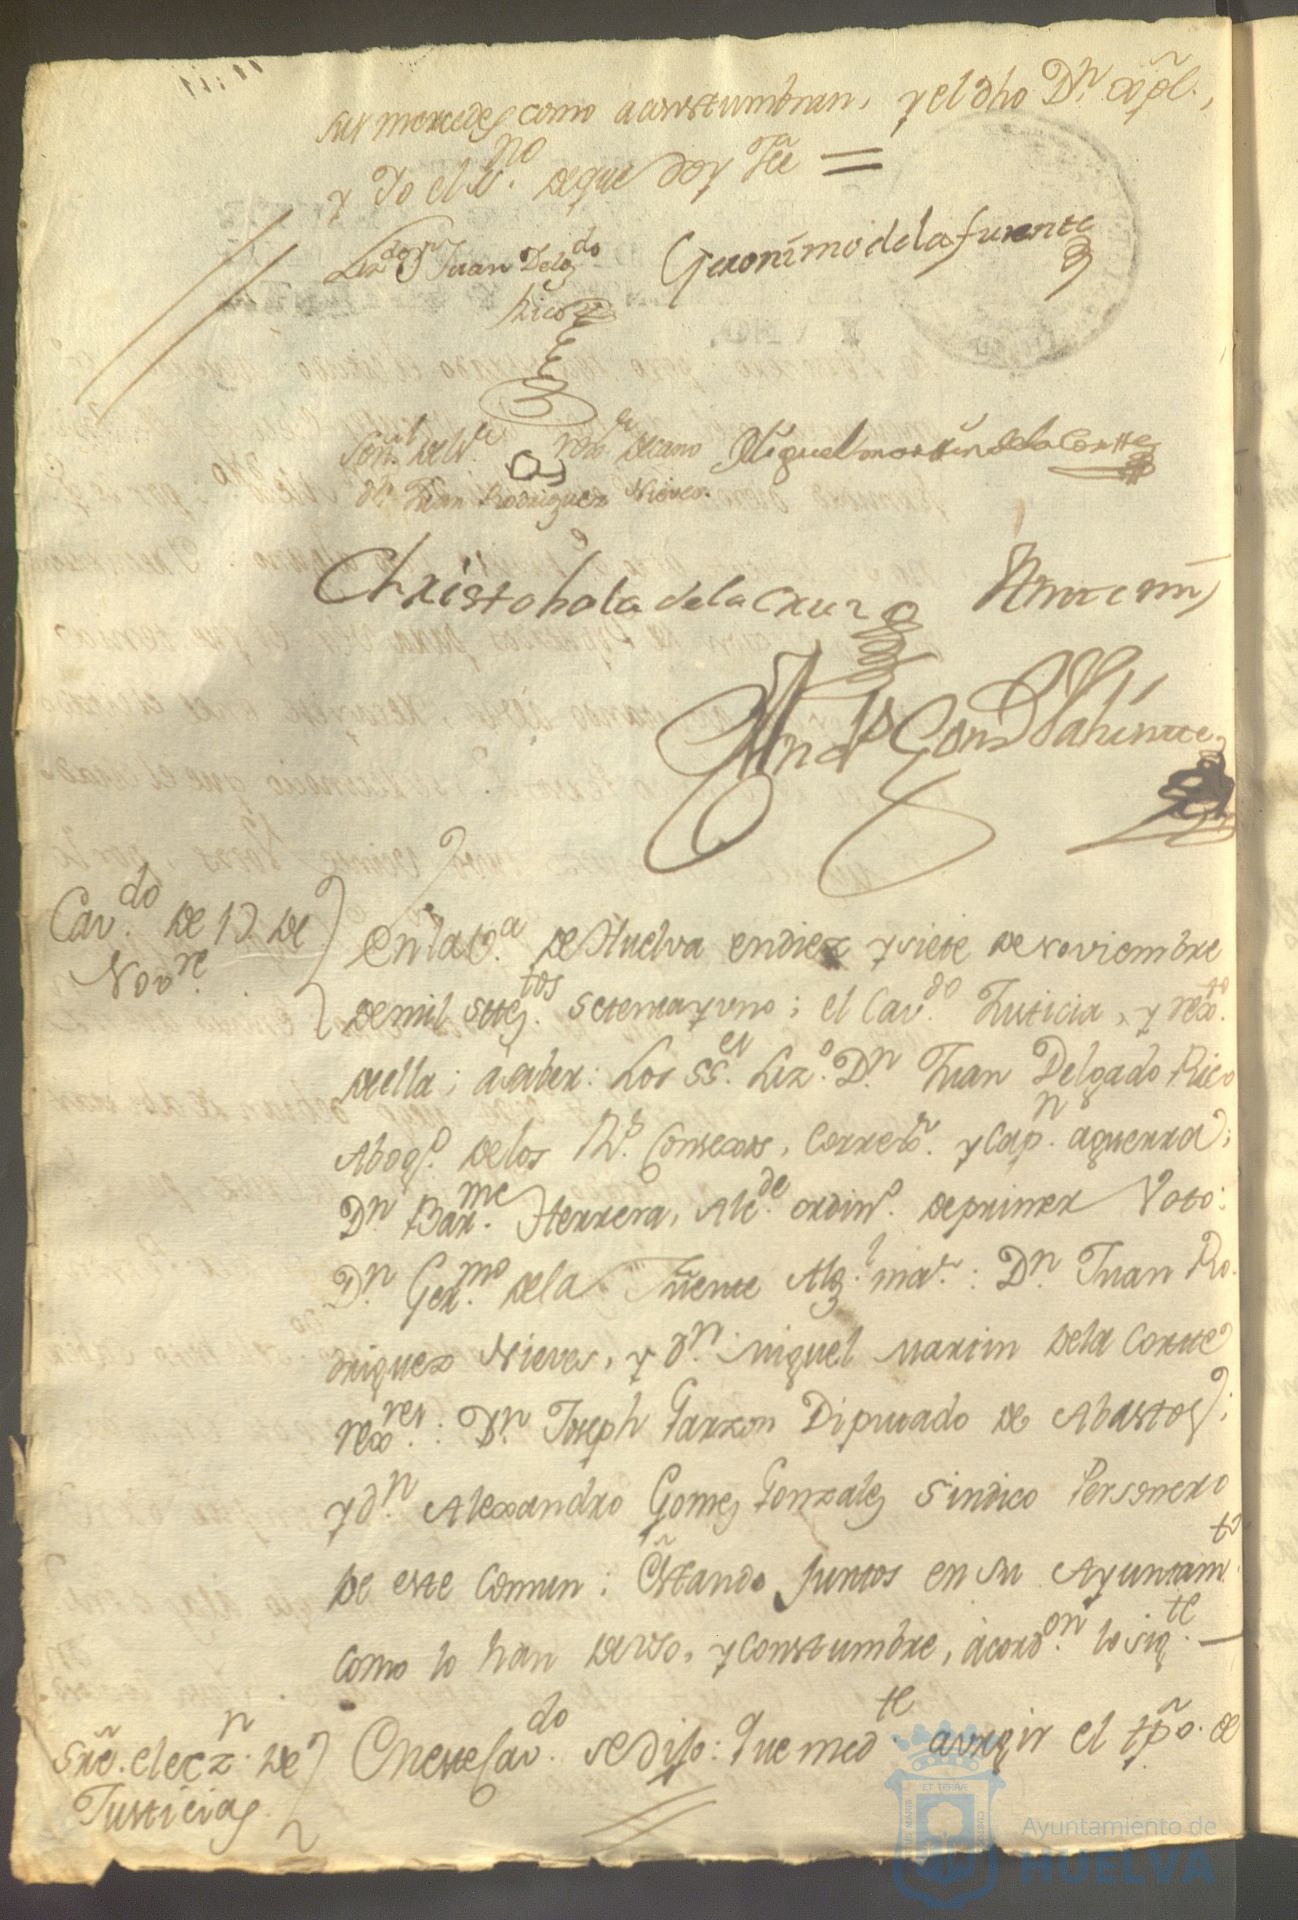 sus mercedes como acostumbran, y el dho Dn. Xptl.,
y Yo el sno. de que doy Fee =
Lizdo. Dn Juan Delgdo
Rico
Geronimo de la fuente
señl. de
rexor. decano
dn. Juan Rodriguez Nieves.
Miguel martin de la Corte
Christobal de la Cruz
Ante mi
Cavdo. de 17 de
Novre.
En la Va. de Huelva en diez y siete de Noviembre
de mil Setetos. setenta y uno; el Cavdo. Justicia, y rexto.
de ella; a saber: Los SSes. Lizo. Dn. Juan Delgado Rico
Abogo. de los Rs. Consexos, Correxor. y Capn. a guerra;
Dn Barme. Herrera, Alcde. ordino. de primer Voto:
Dn. Germo. de la Fuente Algl. mar.: Dn. Juan Ro-
driguez Nieves, y dn. Miguel Martin de la Corte
rexres.: Dn. Joseph Garzon Diputado de Abastos;
y dn. Alexandro Gomez Gonzalez Sindico Personero
de este Comun: Estando juntos en su Ayuntamto.
como lo han de uso, y constumbre, acordon. lo sigte. —
Sre. eleczn. de
Justicias
En este Cavdo. se dijo: Que medte. a urgir el tpo. de
ET TERRÆ
Ayuntamiento de
HUELVA